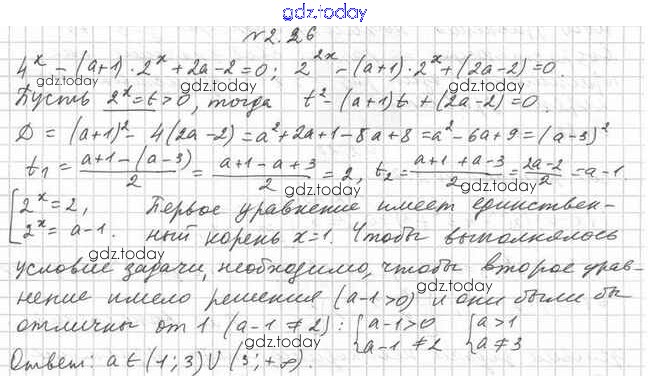 gdz.today
№2.26
4^x − (a+1)·2^x + 2a−2 = 0; 2^{2x} − (a+1)·2^x + (2a−2) = 0.
gdz.today gdz.today
Пусть 2^x = t > 0, тогда t² − (a+1)t + (2a−2) = 0.
gdz.today
D = (a+1)² − 4(2a−2) = a² + 2a + 1 − 8a + 8 = a² − 6a + 9 = (a−3)²
gdz.today
t₁ = (a+1−(a−3))/2 = (a+1−a+3)/2 = 2, t₂ = (a+1+a−3)/2 = (2a−2)/2 = a−1.
gdz.today gdz.today
[2^x = 2, Первое уравнение имеет единствен-
[2^x = a−1. ный корень x=1. Чтобы выполнялось
gdz.today gdz.today
условие задачи, необходимо, чтобы второе урав-
gdz.today
нение имело решения (a−1>0) и они были бы
gdz.today
отличны от 1 (a−1≠2): {a−1>0 {a>1
{a−1≠2 {a≠3
gdz.today gdz.today
Ответ: a ∈ (1;3)∪(3;+∞).
gdz.today